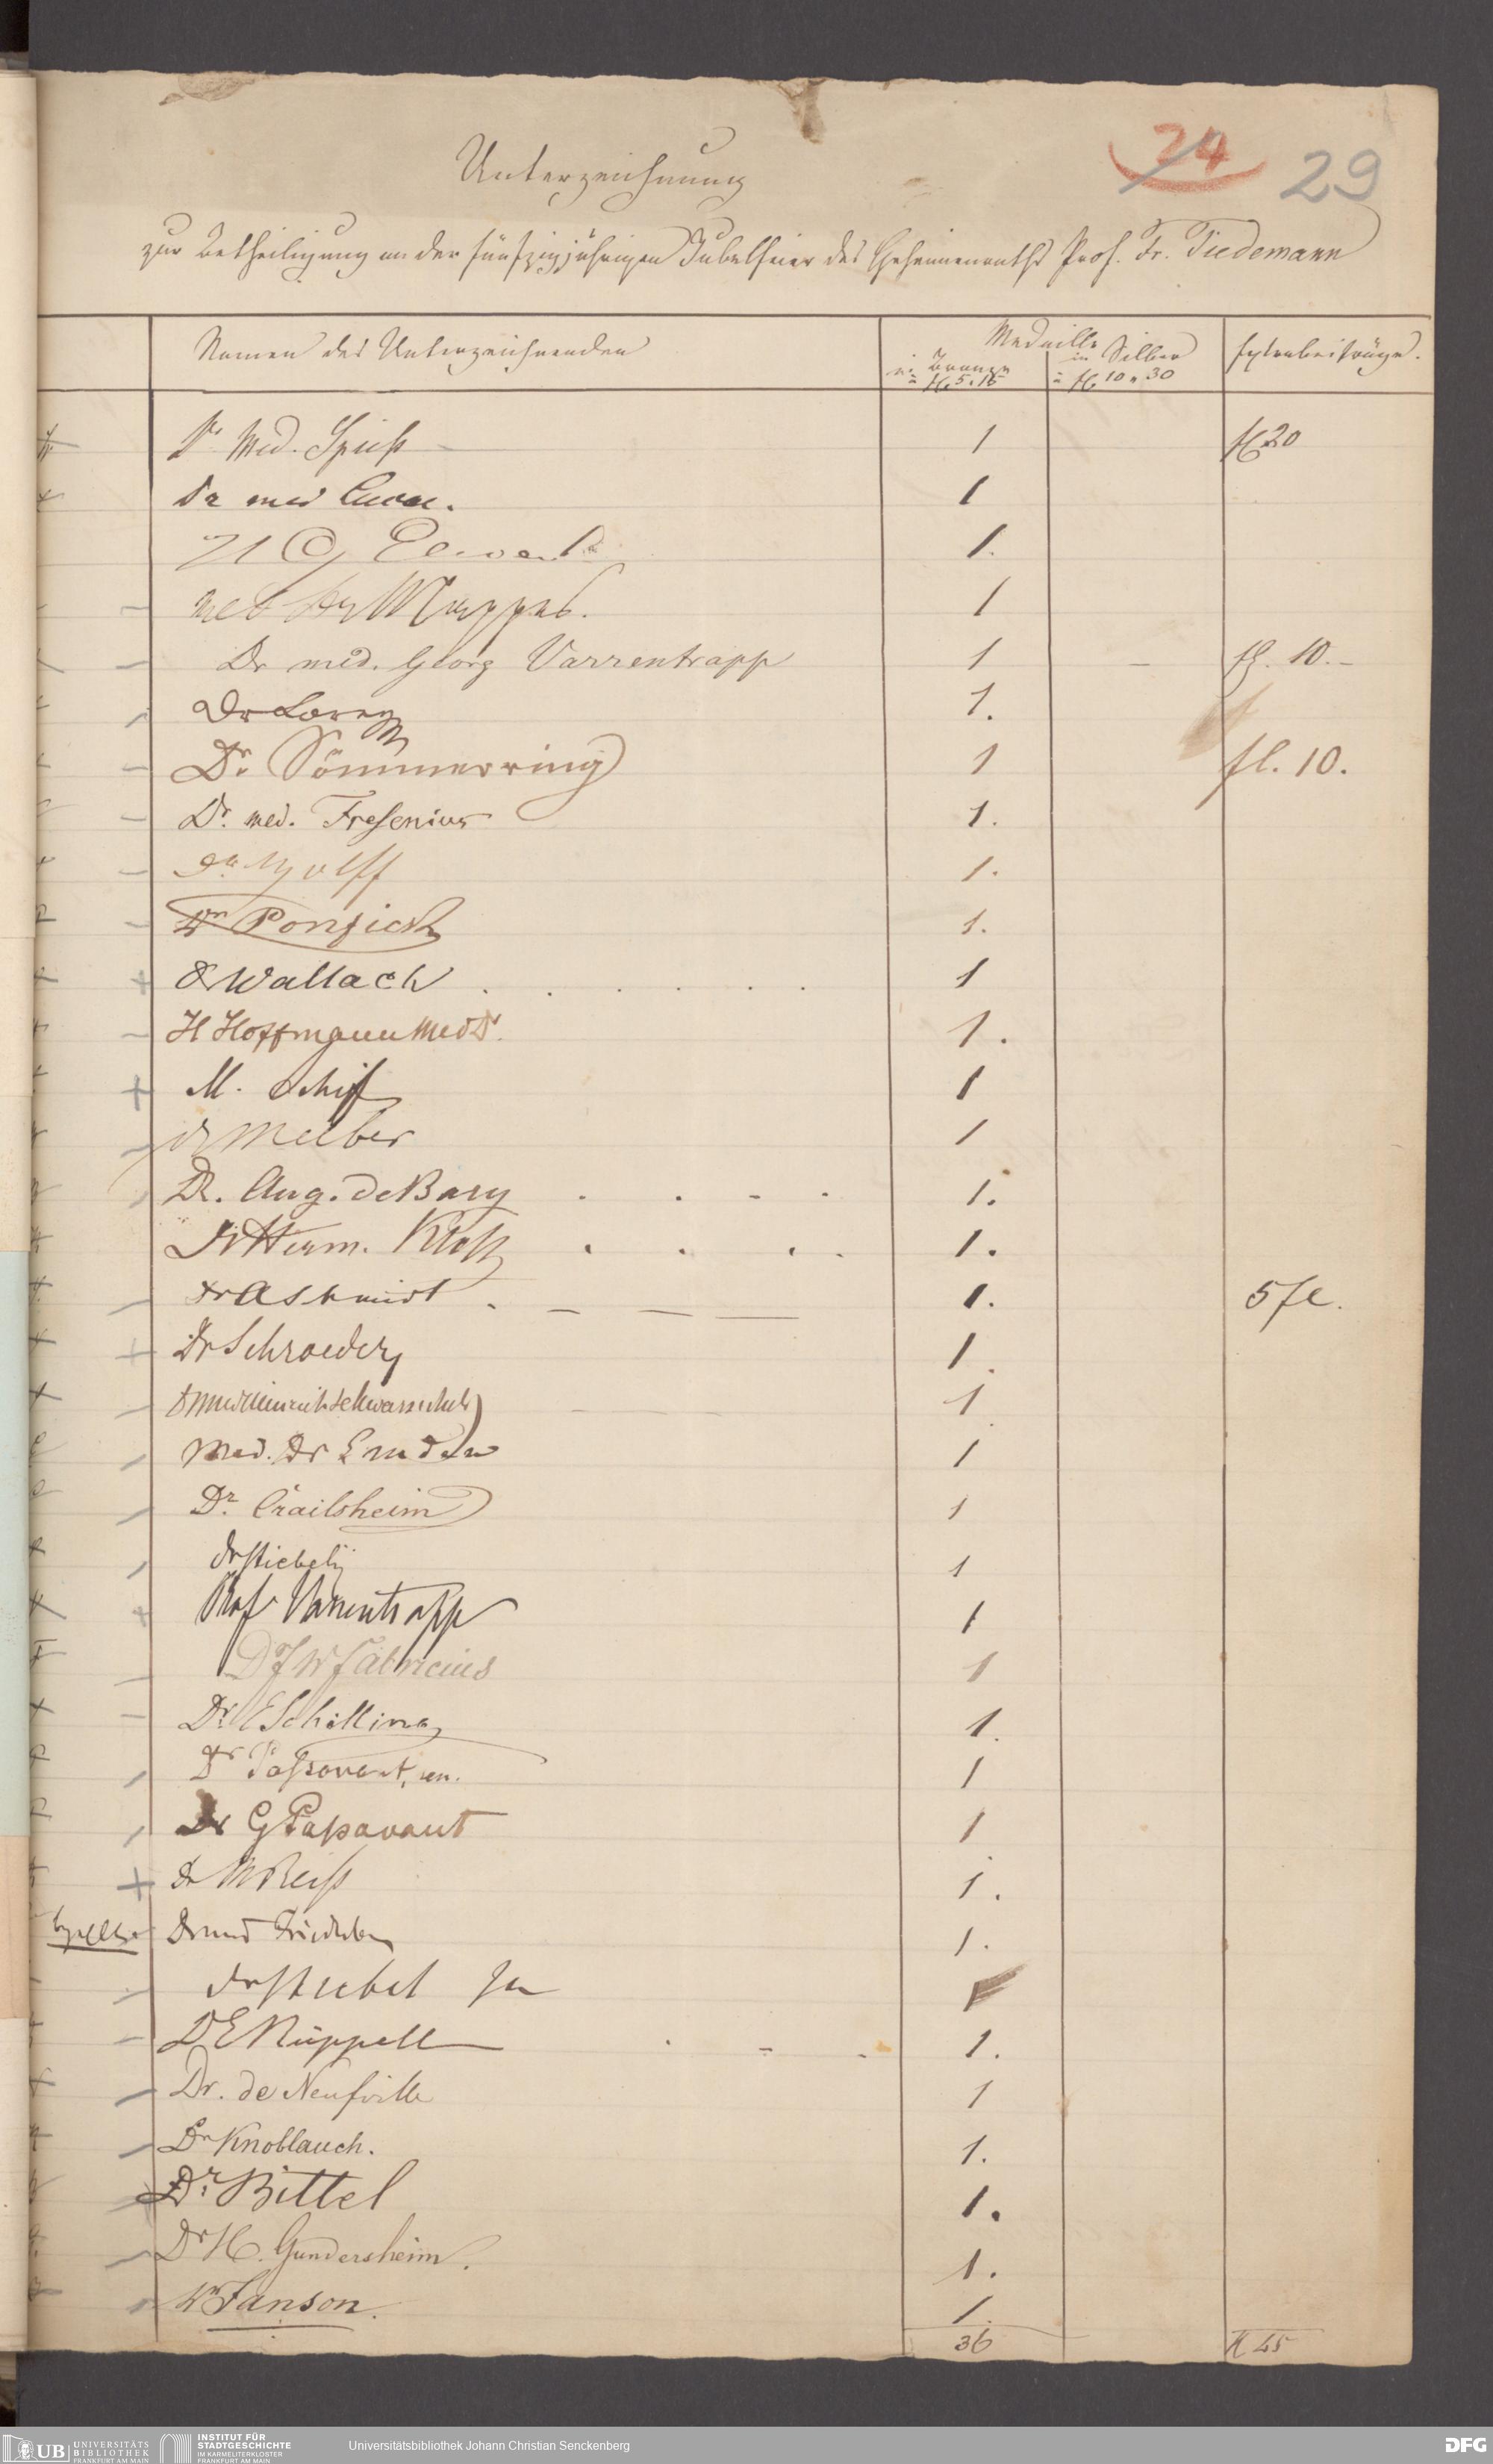 24 29
Unterzeichnung
zur Betheiligung an der fünfzigjährigen Jubelfeier des Geheimenraths Prof. Fr. Tiedemann
Namen des Unterzeichnenden
Medaille
in Bronze
à fl. 5.15
in Silber
à fl. 10 " 30
Extrabeiträge.
Dr Med. Spieß 1 fl 20
Dr med 1
1.
Med Dr Mappes. 1
Dr med. Georg Varrentrapp 1 – fl. 10.–
Dr Lorey 1.
Dr. Sömmerring 1 fl. 10.
Dr. med. Fresenius 1.
Dr. Wolff 1.
Dr Ponfick 1.
Dr Wallach 1
H Hoffmann Med Dr. 1.
M. Schiff 1
Dr Melber 1
Dr. Aug. de Bary 1.
Dr Herm. Kloß 1.
Dr A Schmidt 1. 5 fl.
Dr Schroeder 1.
Dr med Heinrich Schwarzschild 1
Med. Dr Emden 1
Dr. Crailsheim 1
Dr Stiebel 1
Prof Varrentrapp 1
Dr J W Fabricius 1
Dr. E Schilling 1.
Dr Passavant, sen. 1
Dr G Passavant 1
Dr M Reiß 1.
Dr med Friedleben 1.
Dr Stiebel Jn
Dr E Rüppell 1.
Dr. de Neufville 1
Dr Knoblauch. 1.
Dr. Bittel 1.
Dr H. Gundersheim. 1.
Dr Janson. 1.
36 fl 45
UB UNIVERSITÄTS
BIBLIOTHEK
FRANKFURT AM MAIN
INSTITUT FÜR
STADTGESCHICHTE
IM KARMELITERKLOSTER
FRANKFURT AM MAIN
Universitätsbibliothek Johann Christian Senckenberg
DFG